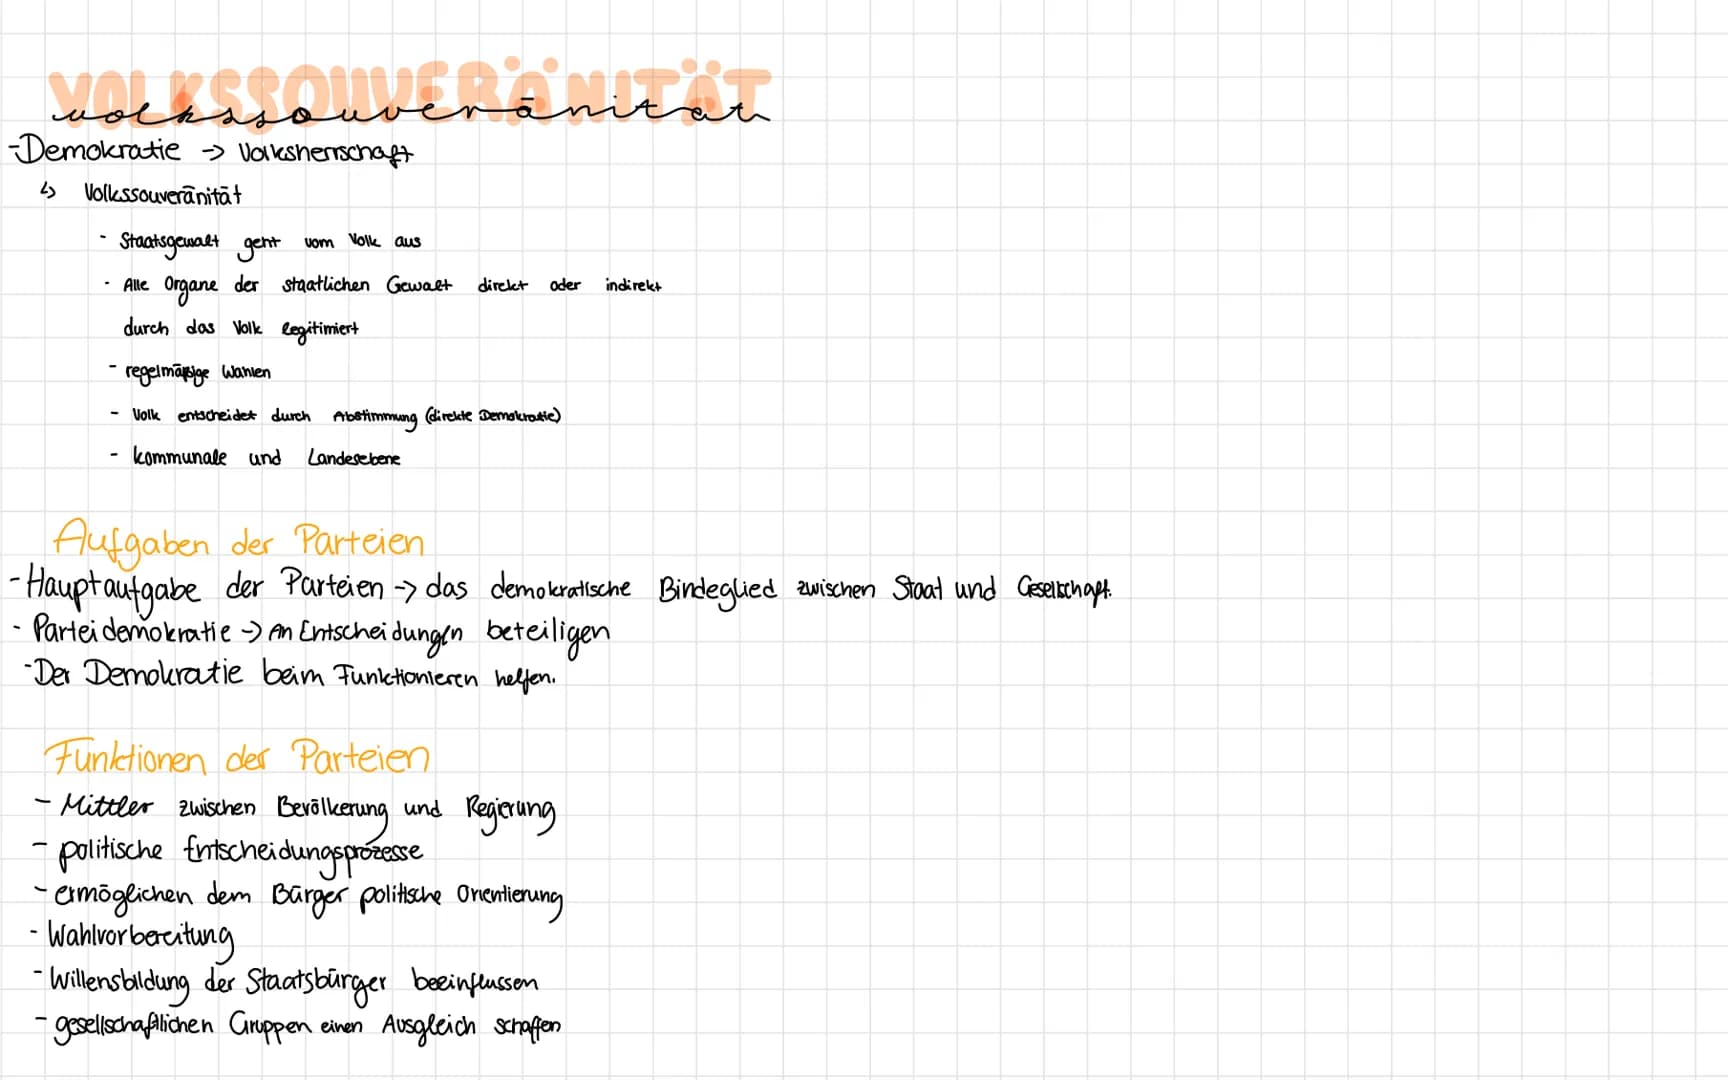 VOLKSSOUVERÄNITÄT
volkssouveränität
-Demokratie -> Volksherrschaft
↳ Volkssouveränität
- Staatsgewalt geht vom Volk aus
- Alle Organe der staatlichen Gewalt direkt oder indirekt
durch das Volk legitimiert
- regelmäßige Wahlen
- Volk entscheidet durch Abstimmung (direkte Demokratie)
- kommunale und Landesebene
Aufgaben der Parteien
- Hauptaufgabe der Parteien -> das demokratische Bindeglied zwischen Staat und Gesellschaft.
- Parteidemokratie -> An Entscheidungen beteiligen
- Der Demokratie beim Funktionieren helfen.
Funktionen der Parteien
- Mittler zwischen Bevölkerung und Regierung
- politische Entscheidungsprozesse
- ermöglichen dem Bürger politische Orientierung
- Wahlvorbereitung
- Willensbildung der Staatsbürger beeinflussen
- gesellschaftlichen Gruppen einen Ausgleich schaffen